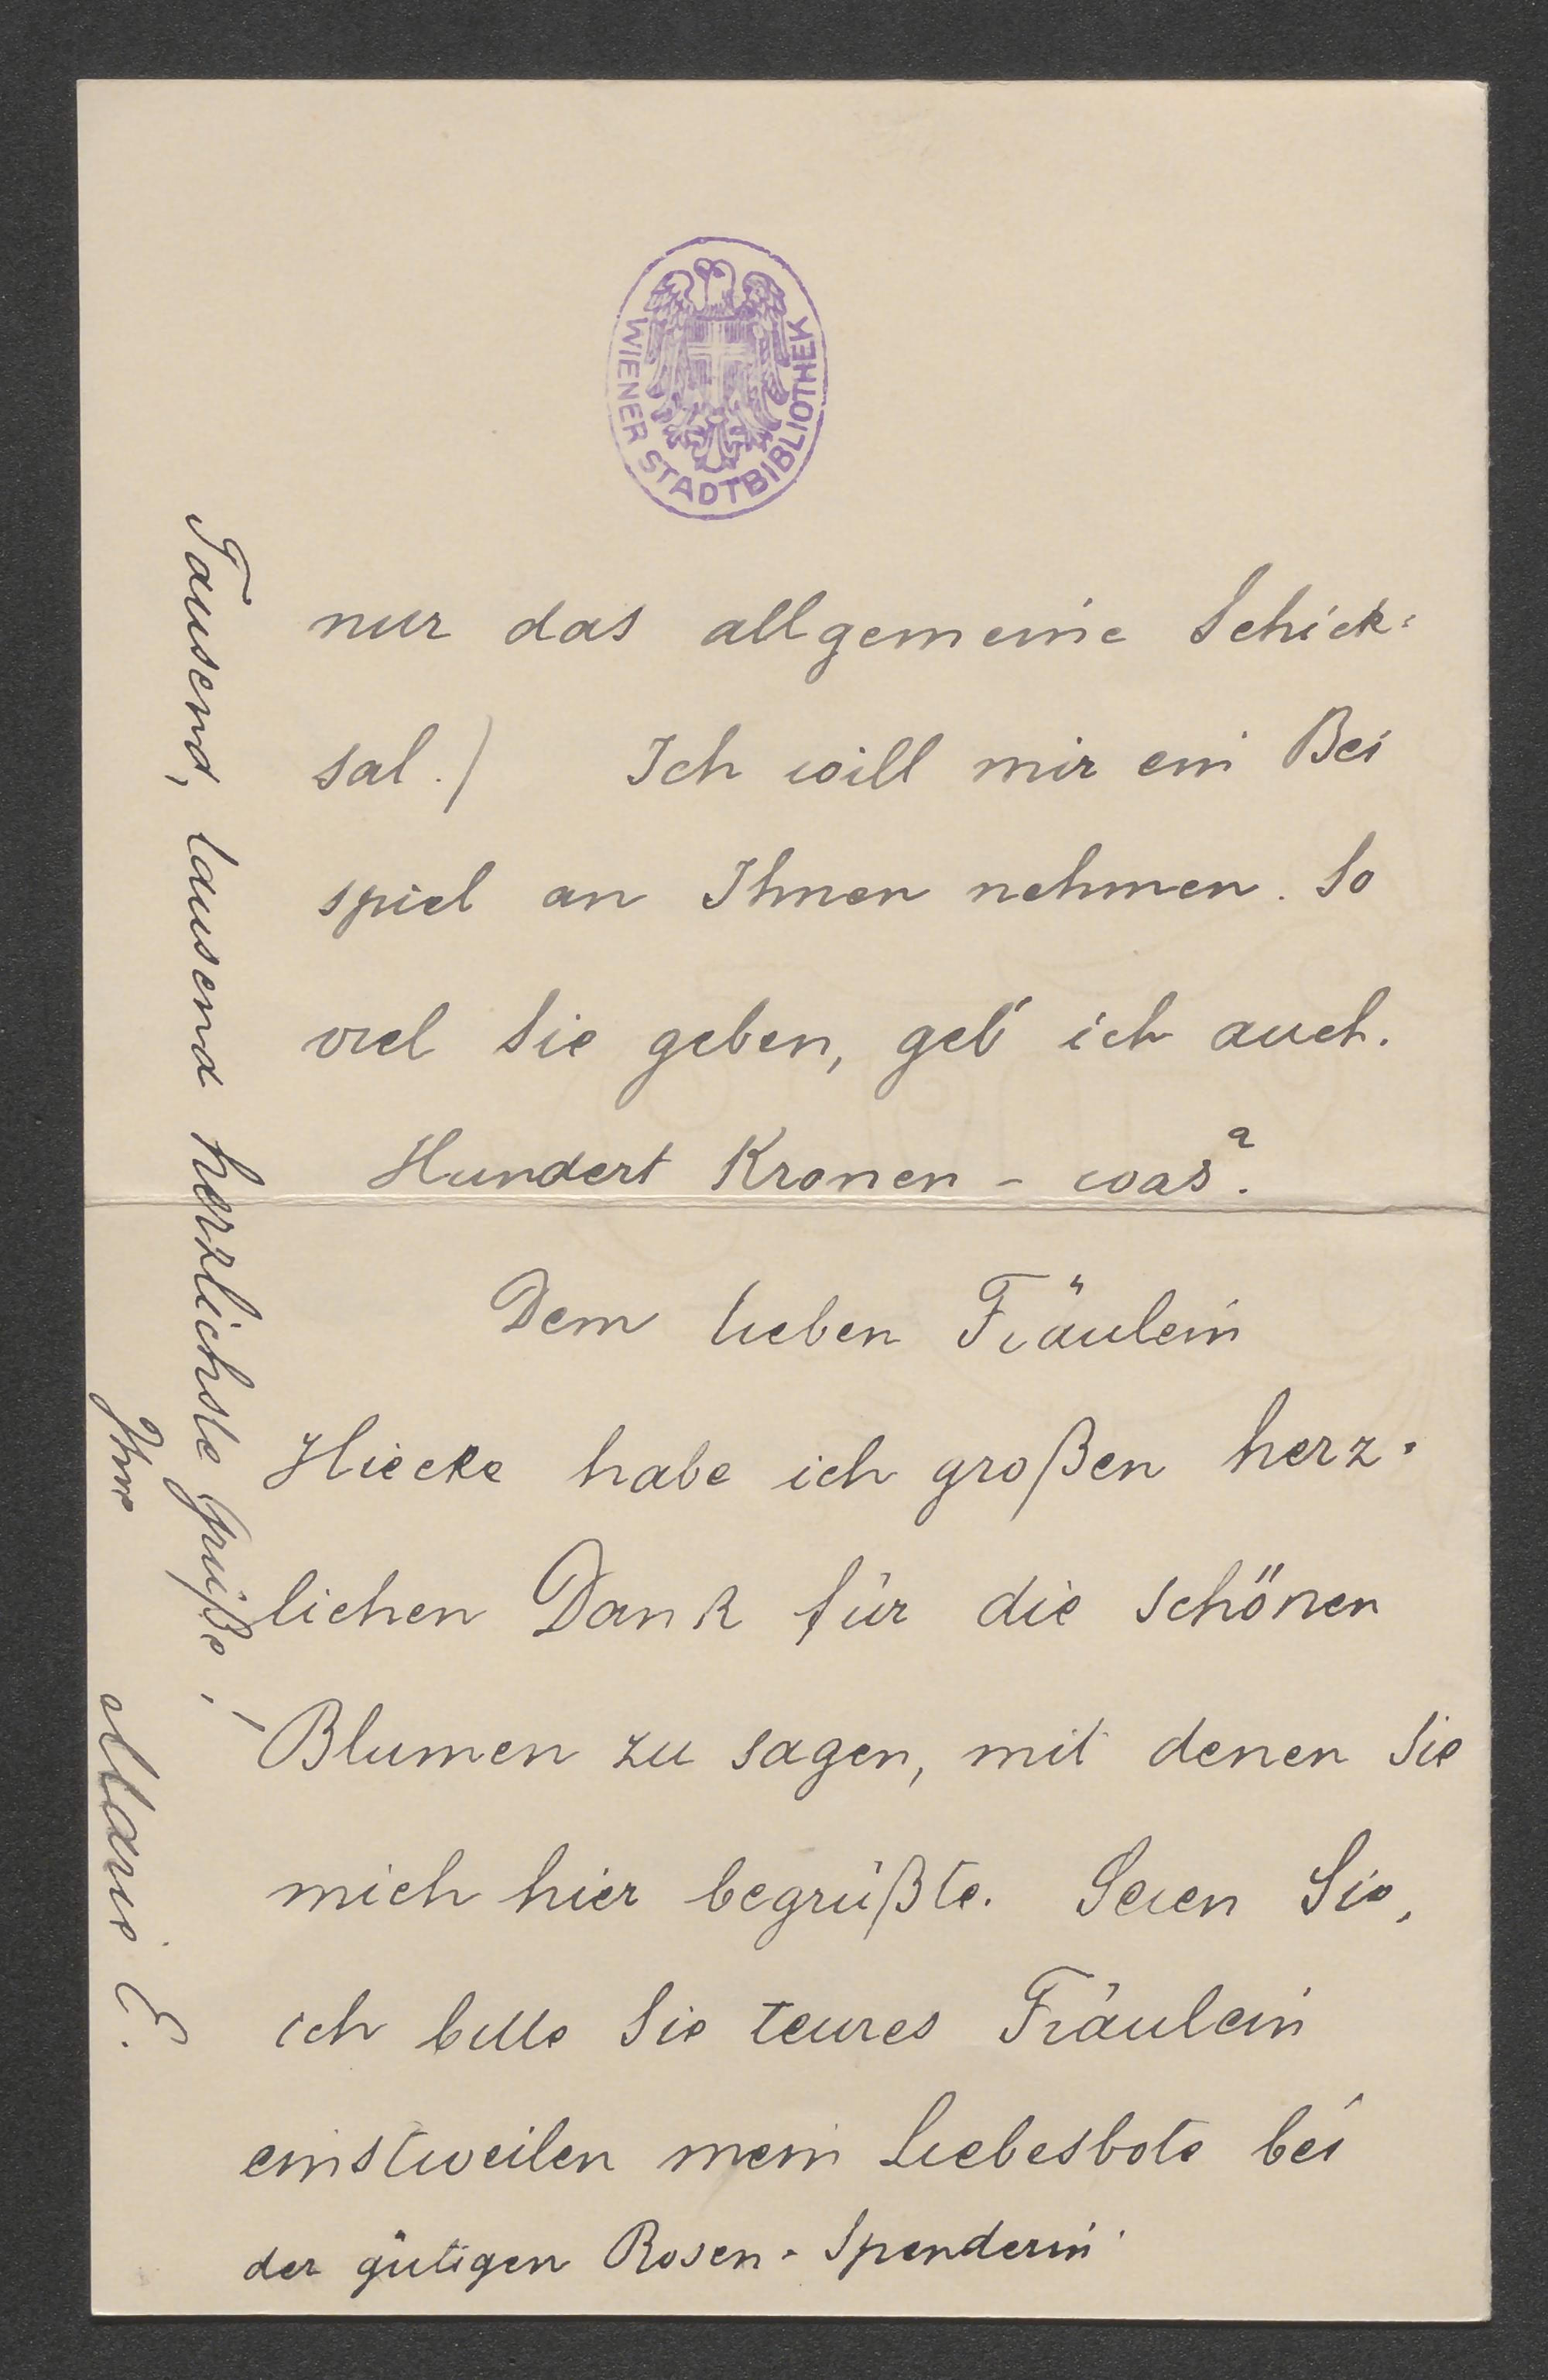 WIENER STADTBIBLIOTHEK
nur das allgemeine Schick=
sal.) Ich will mir ein Bei
spiel an Ihnen nehmen. So
viel Sie geben, geb' ich auch.
Hundert Kronen - was?
Dem lieben Fräulein
Hiecke habe ich großen herz-
lichen Dank für die schönen
Blumen zu sagen, mit denen Sie
mich hier begrüßte. Seien Sie,
ich bitte Sie teures Fräulein
einstweilen mein Liebesbote bei
der gütigen Rosen-Spenderin
Tausend, tausend herzlichste Grüße,
Ihre Marie E.